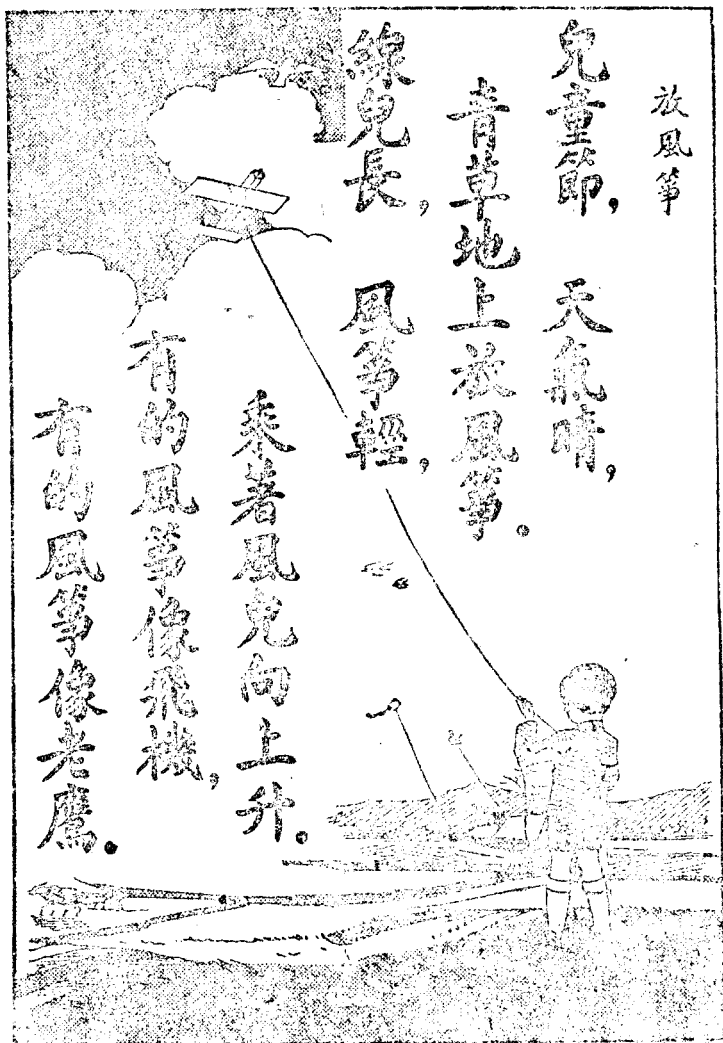 放風箏
兒童節， 天氣晴，
青草地上放風箏．
線兒長， 風箏輕，
乘著風兒向上升．
有的風箏像飛機，
有的風箏像老鷹．